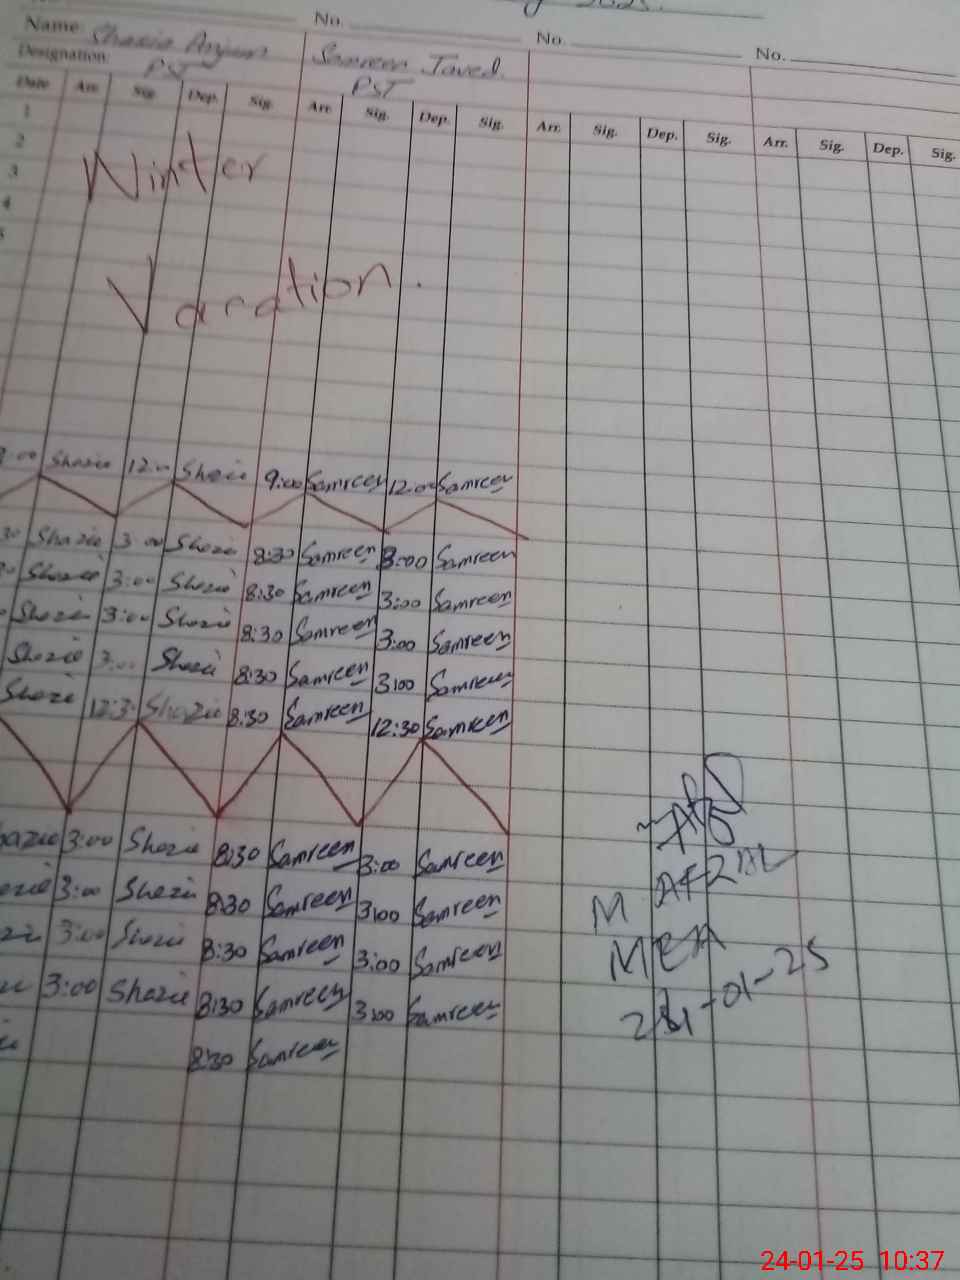 2025.
No. No. No.
Name: Shazia Anjum Samreen Javed.
Designation: PST PST
Date Arr. Sig. Dep. Sig. Arr. Sig. Dep. Sig. Arr. Sig. Dep. Sig. Arr. Sig. Dep. Sig.
1
2
3
4
5
Winter
Vacation.
9:00 Shazia 12:00 Shazia 9:00 Samreen 12:00 Samreen
30 Shazia 3:00 Shazia 8:30 Samreen 3:00 Samreen
Shazia 3:00 Shazia 8:30 Samreen 3:00 Samreen
Shazia 3:00 Shazia 8:30 Samreen 3:00 Samreen
Shazia 3:00 Shazia 8:30 Samreen 3:00 Samreen
Shazia 12:30 Shazia 8:30 Samreen 12:30 Samreen
3:00 Shazia 8:30 Samreen 3:00 Samreen
3:00 Shazia 8:30 Samreen 3:00 Samreen
3:00 Shazia 8:30 Samreen 3:00 Samreen
3:00 Shazia 8:30 Samreen 3:00 Samreen
8:30 Samreen
M AFZAL
MEA
24-01-25
24-01-25 10:37